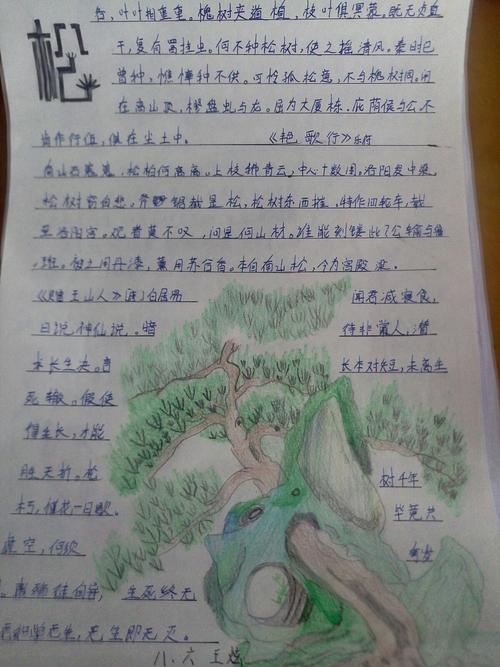 行,叶叶相重重。槐树夹道植,枝叶俱冥蒙。既无贞直
松
干,复有罥挂虫。何不种松树,使之摇清风。秦时已
曾种,憔悴种不供。可怜孤松意,不与槐树同。闲
在高山顶,樛盘虬与龙。屈为大厦栋,庇荫侯与公。不
肯作行伍,俱在尘土中。 《艳歌行》乐府
南山石嵬嵬,松柏何离离。上枝拂青云,中心十数围。洛阳发中梁,
松树窃自悲。斧锯截是松,松树东西摧。持作四轮车,载
至洛阳宫。观者莫不叹,问是何山材。谁能刻镂此?公输与鲁
班。被之用丹漆,薰用苏合香。本自南山松,今为宫殿梁。
《赠王山人》 白居易 闻君减寝食,
日 神仙说。暗 待非常人,潜
求长生诀。言 长本对短,未离生
死辙。假使
得生长,才能
胜夭折。松 树千年
朽,槿花一日歇。 毕竟共
虚空,何须
生死终无
无生即无灭。
八、六 王